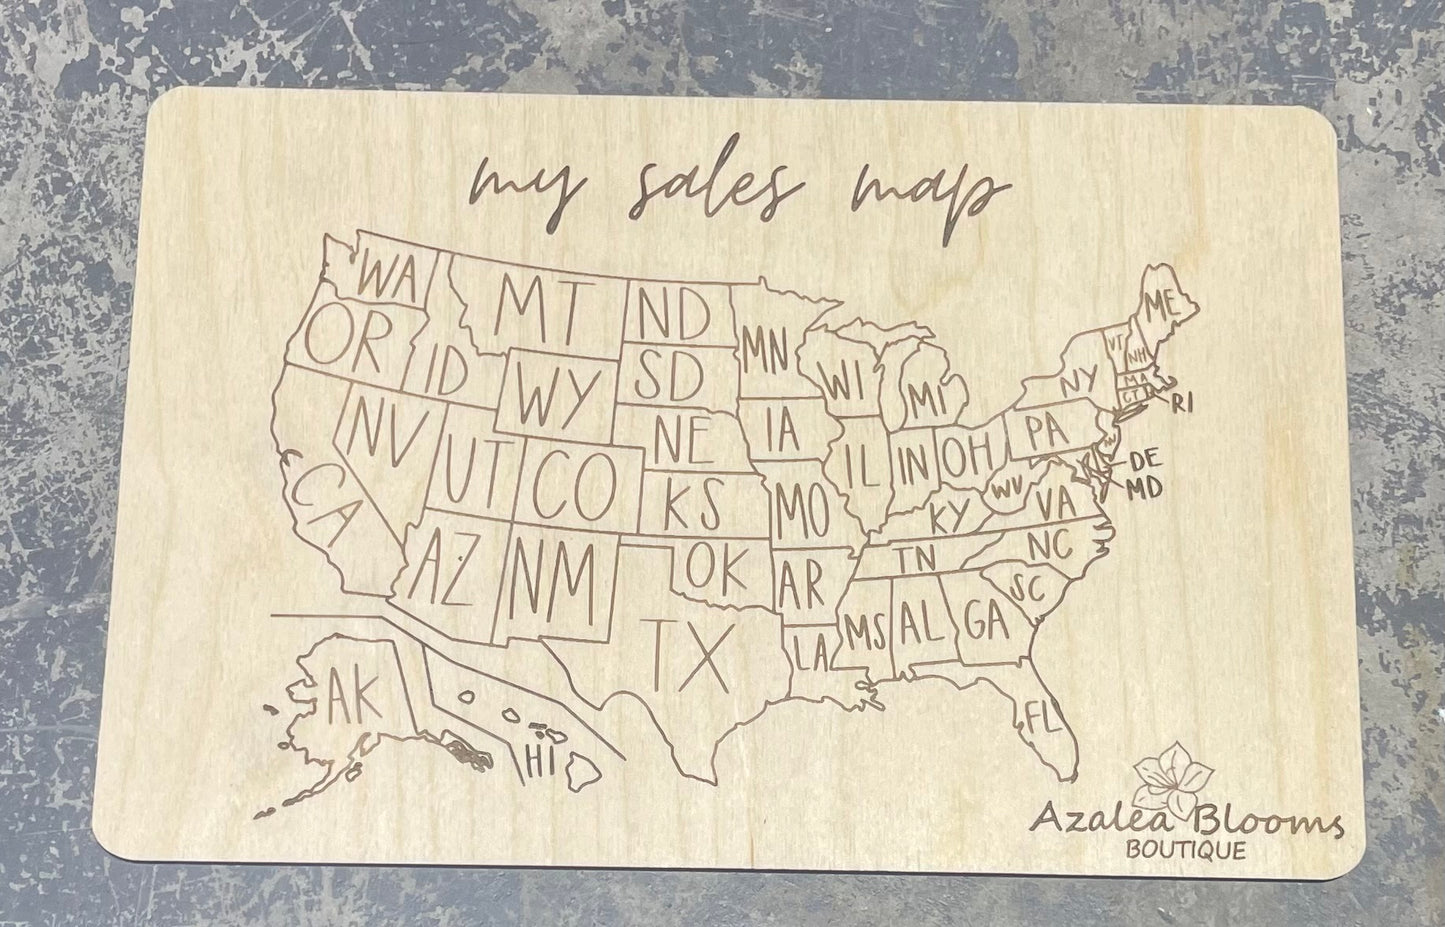 my sales map
WA
MT
ND
MN
ME
OR
ID
WY
SD
WI
MI
VT
NH
NY
MA
CT
RI
NV
UT
CO
NE
IA
IL
IN
OH
PA
NJ
DE
MD
CA
KS
MO
KY
WV
VA
AZ
NM
OK
AR
TN
NC
SC
TX
LA
MS
AL
GA
FL
AK
HI
Azalea Blooms
BOUTIQUE